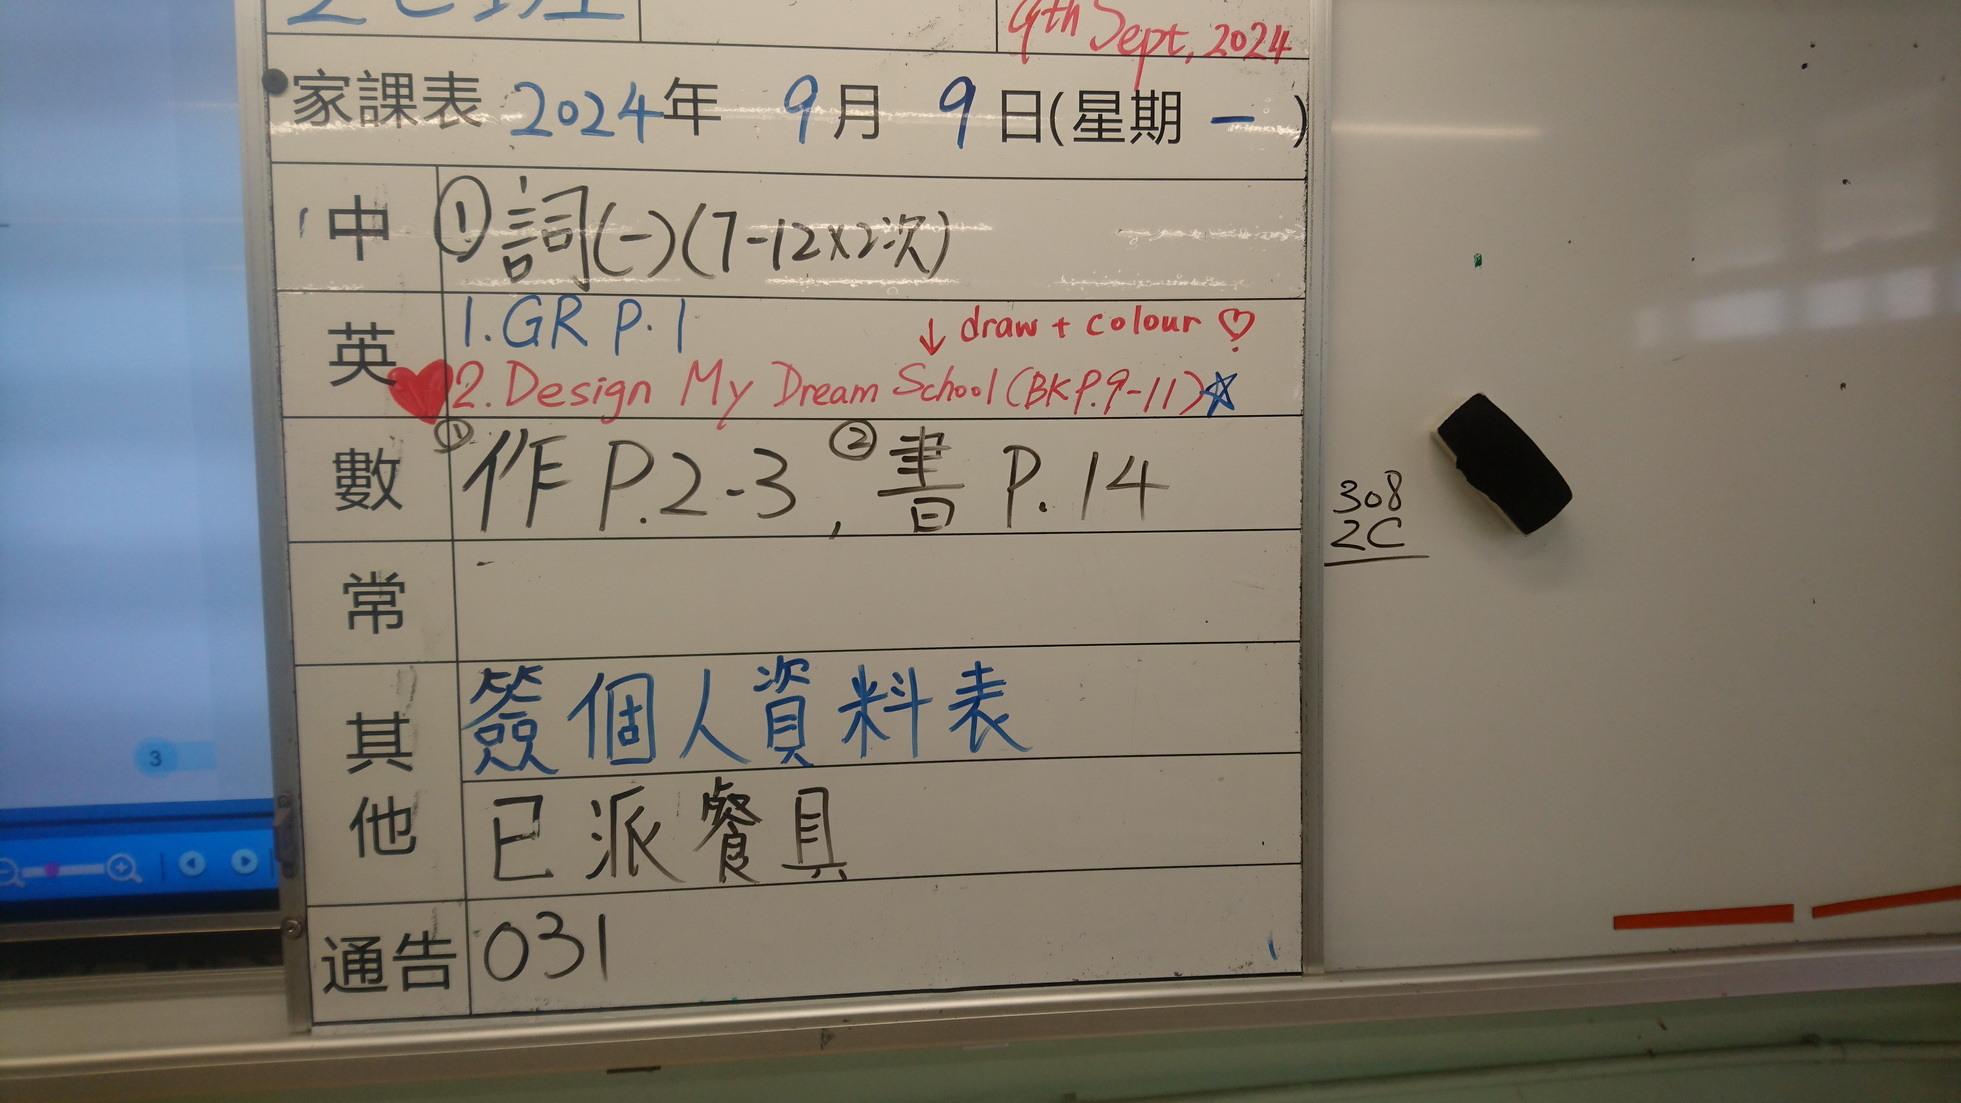 2C班
9th Sept, 2024
家課表 2024年 9月 9日(星期一)
中 ①詞(一)(7-12x2次)
英 1. GR P.1
↓ draw + colour ♡
2. Design My Dream School (BK P.9-11)☆
數 ①作 P.2-3, ②書 P.14
常
其他 簽個人資料表
已派餐具
通告 031
308
2C
3